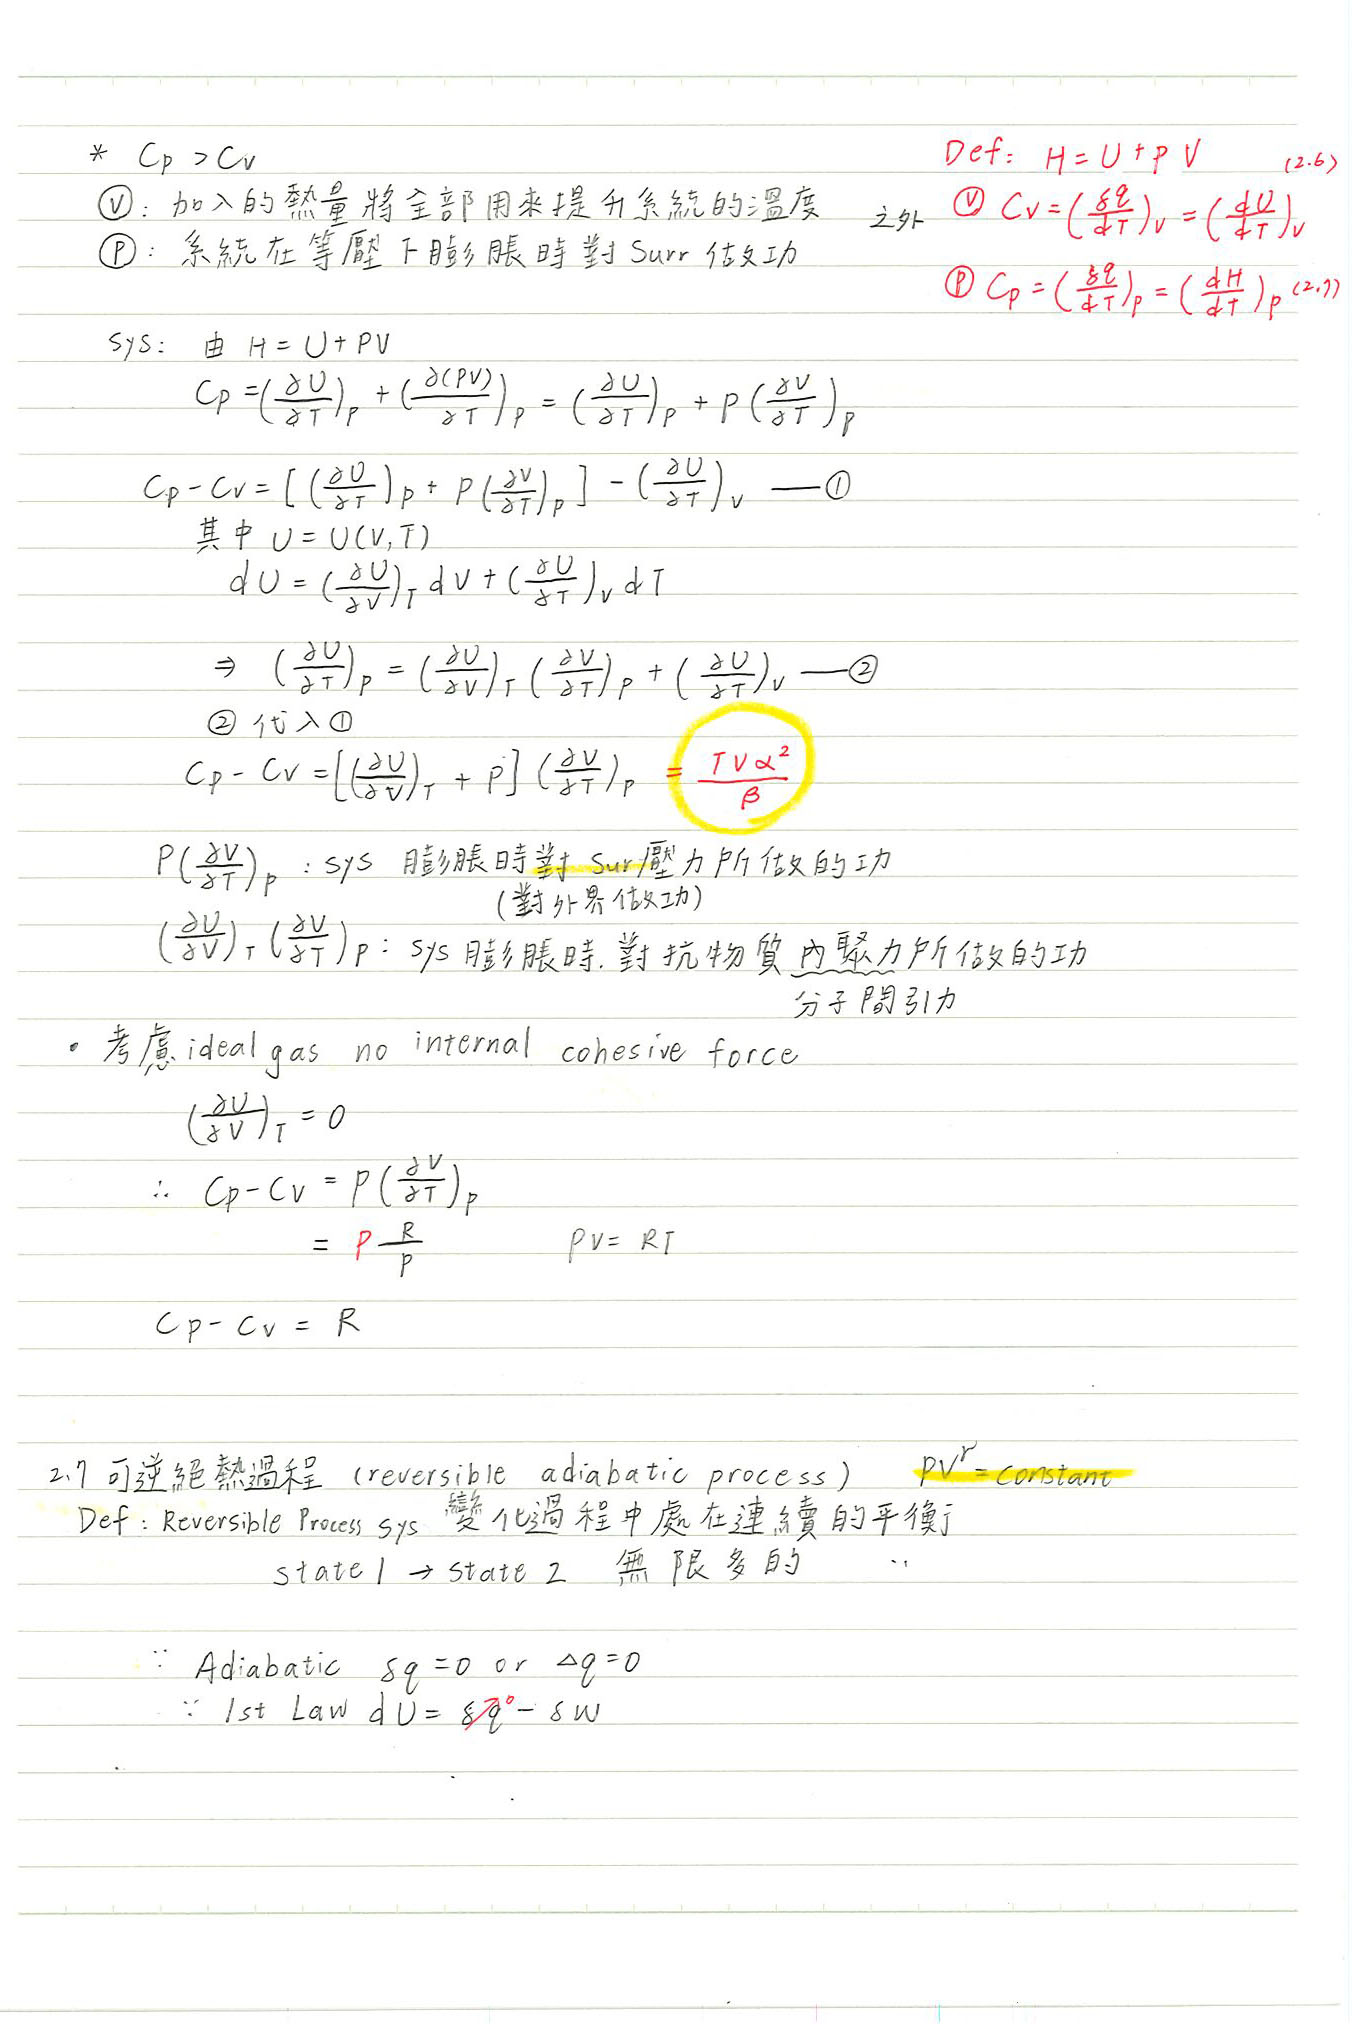 * Cp > Cv
Def: H = U + PV (2.6)
Ⓥ: 加入的熱量將全部用來提升系統的溫度 之外
Ⓥ Cv = (δq/dT)v = (dU/dT)v
Ⓟ: 系統在等壓下膨脹時對Surr 做功
Ⓟ Cp = (δq/dT)p = (dH/dT)p (2.7)
sys: 由 H = U + PV
Cp = (∂U/∂T)p + (∂(PV)/∂T)p = (∂U/∂T)p + P(∂V/∂T)p
Cp - Cv = [(∂U/∂T)p + P(∂V/∂T)p] - (∂U/∂T)v —①
其中 U = U(V,T)
dU = (∂U/∂V)T dV + (∂U/∂T)v dT
⇒ (∂U/∂T)p = (∂U/∂V)T (∂V/∂T)p + (∂U/∂T)v —②
② 代入 ①
Cp - Cv = [(∂U/∂V)T + P] (∂V/∂T)p = TVα²/β
P(∂V/∂T)p : sys 膨脹時對 Sur壓力所做的功
(對外界做功)
(∂U/∂V)T (∂V/∂T)p : sys 膨脹時.對抗物質內聚力所做的功
分子間引力
• 考慮ideal gas no internal cohesive force
(∂U/∂V)T = 0
∴ Cp - Cv = P(∂V/∂T)p
= P R/P PV = RT
Cp - Cv = R
2.7 可逆絕熱過程 (reversible adiabatic process) PV^γ = constant
Def : Reversible Process sys 變化過程中處在連續的平衡
state 1 → state 2 無限多的 ..
∵ Adiabatic δq = 0 or Δq = 0
∵ 1st Law dU = δq⁰ - δw